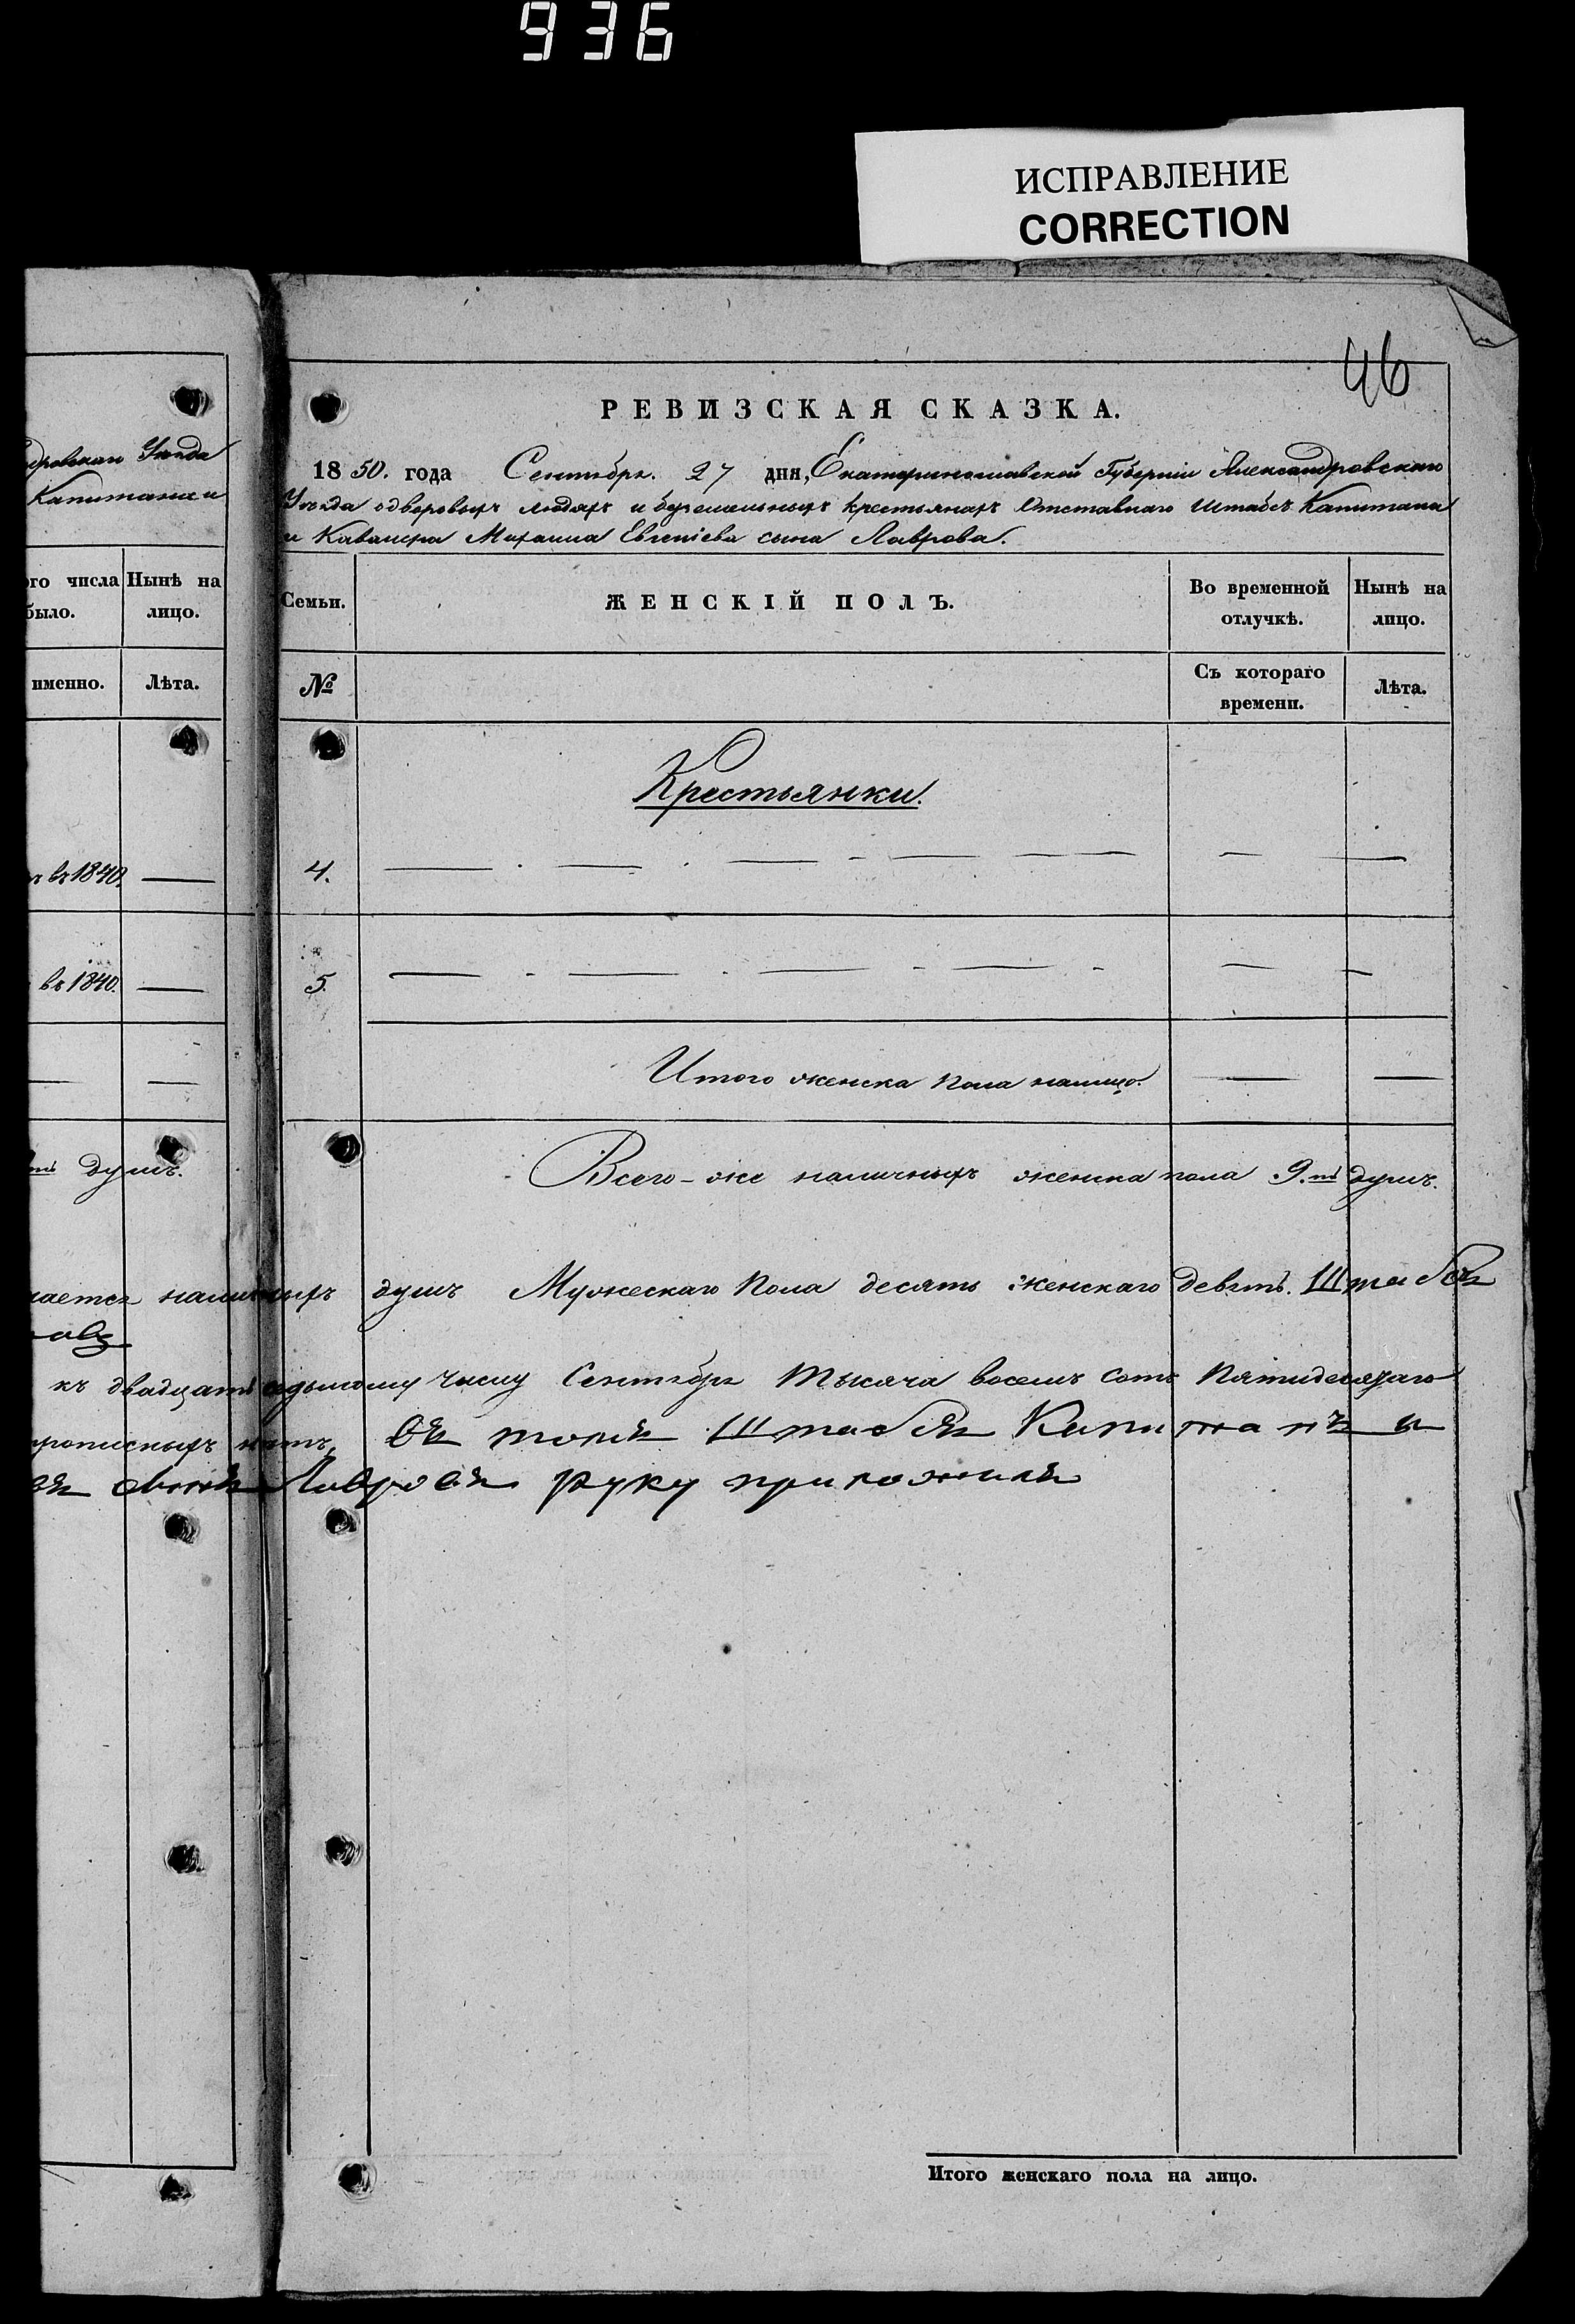 936
ИСПРАВЛЕНИЕ
CORRECTION
46
РЕВИЗСКАЯ СКАЗКА.
1850. года Сентября. 27 дня, Екатеринославской Губерніи Александровскаго
Уѣзда одворовыхъ людяхъ и безземельныхъ крестьянахъ Отставнаго Штабсъ Капитана
и Кавалера Михаила Евгеніева сына Лаврова.
Уѣзда
Капитана и
го числа было. Нынѣ на лицо.
именно. Лѣта.
въ 1840. —
въ 1840. —
— —
душъ.
Семьи. ЖЕНСКІЙ ПОЛЪ. Во временной отлучкѣ. Нынѣ на лицо.
№ Съ котораго времени. Лѣта.
Крестьянки.
4. — — — — — — —
5. — — — — — —
Итого женска пола налицо. — —
Всего-же наличныхъ женска пола 9.ть душъ.
наличныхъ душъ Мужескаго пола десять женскаго девять. Штабсъ
къ двадцать седьмому числу Сентября тысяча восемь сотъ пятидесятаго
прописныхъ нѣтъ, въ томъ Штабсъ Капитанъ и
Лавровъ руку приложилъ
Итого женскаго пола на лицо.